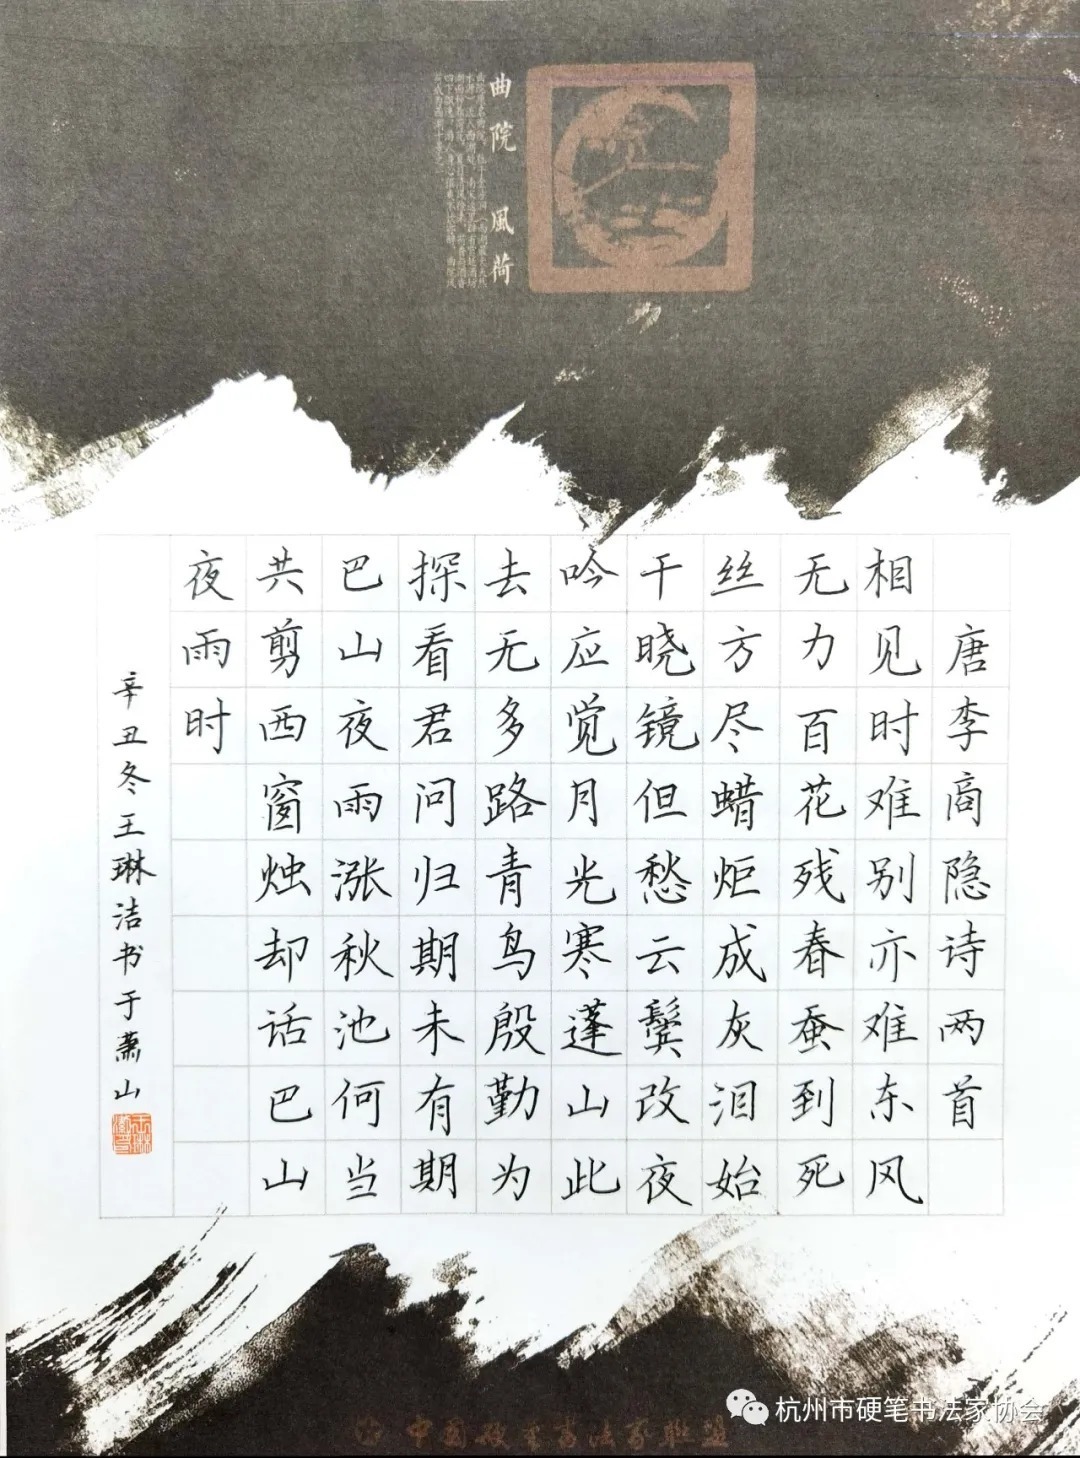 曲院風荷
唐李商隐诗两首
相见时难别亦难东风
无力百花残春蚕到死
丝方尽蜡炬成灰泪始
干晓镜但愁云鬓改夜
吟应觉月光寒蓬山此
去无多路青鸟殷勤为
探看君问归期未有期
巴山夜雨涨秋池何当
共剪西窗烛却话巴山
夜雨时
辛丑冬王琳洁书于萧山
中国硬笔书法家联盟
杭州市硬笔书法家协会